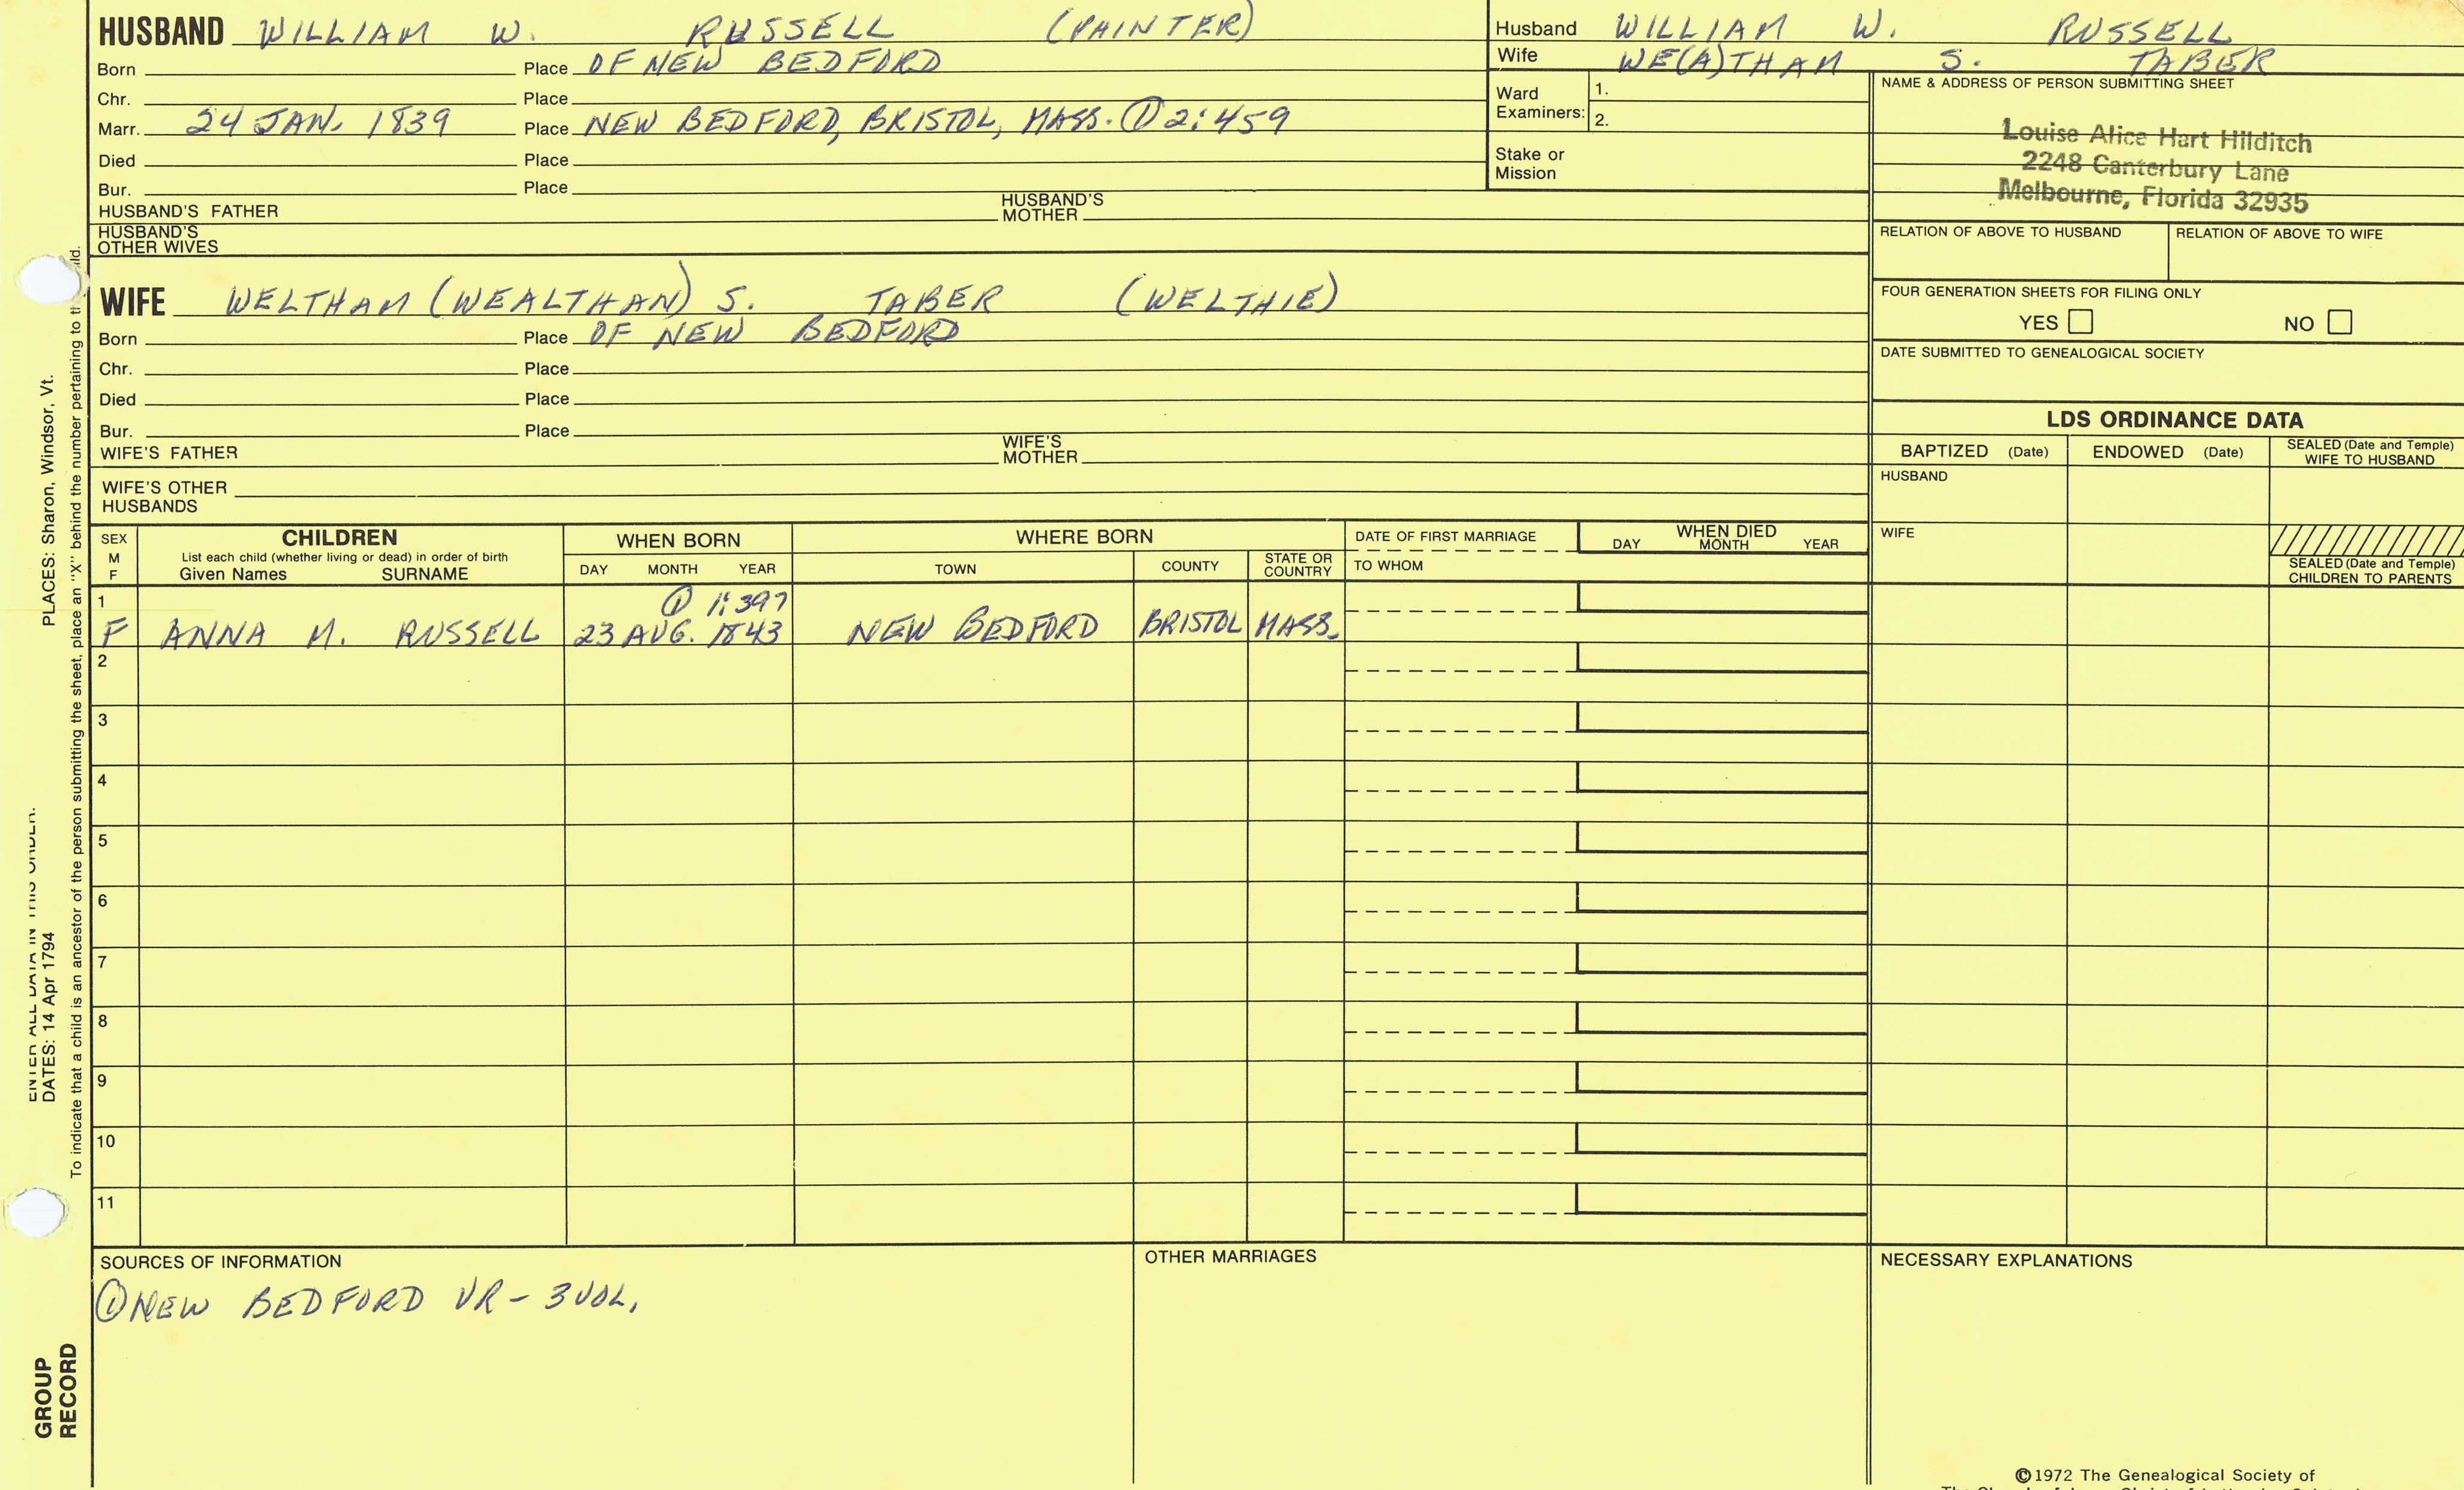 HUSBAND WILLIAM W. RUSSELL (PAINTER)
Born Place OF NEW BEDFORD
Chr. Place
Marr. 24 JAN. 1839 Place NEW BEDFORD, BRISTOL, MASS. ① 2:459
Died Place
Bur. Place
HUSBAND'S FATHER HUSBAND'S MOTHER
HUSBAND'S OTHER WIVES
Husband WILLIAM W. RUSSELL
Wife WE(A)THAM S. TABER
Ward Examiners: 1.
2.
Stake or Mission
NAME & ADDRESS OF PERSON SUBMITTING SHEET
Louise Alice Hart Hilditch
2248 Canterbury Lane
Melbourne, Florida 32935
RELATION OF ABOVE TO HUSBAND RELATION OF ABOVE TO WIFE
FOUR GENERATION SHEETS FOR FILING ONLY
YES NO
DATE SUBMITTED TO GENEALOGICAL SOCIETY
WIFE WELTHAM (WEALTHAN) S. TABER (WELTHIE)
Born Place OF NEW BEDFORD
Chr. Place
Died Place
Bur. Place
WIFE'S FATHER WIFE'S MOTHER
WIFE'S OTHER HUSBANDS
LDS ORDINANCE DATA
BAPTIZED (Date) ENDOWED (Date) SEALED (Date and Temple) WIFE TO HUSBAND
HUSBAND
WIFE
SEALED (Date and Temple) CHILDREN TO PARENTS
SEX M F
CHILDREN
List each child (whether living or dead) in order of birth
Given Names SURNAME
WHEN BORN
DAY MONTH YEAR
WHERE BORN
TOWN COUNTY STATE OR COUNTRY
DATE OF FIRST MARRIAGE
TO WHOM
WHEN DIED
DAY MONTH YEAR
1 ① 1:397
F ANNA M. RUSSELL 23 AUG. 1843 NEW BEDFORD BRISTOL MASS.
2
3
4
5
6
7
8
9
10
11
SOURCES OF INFORMATION
① NEW BEDFORD VR - 3 VOL.
OTHER MARRIAGES
NECESSARY EXPLANATIONS
©1972 The Genealogical Society of
ENTER ALL DATA IN THIS ORDER.
DATES: 14 Apr 1794 PLACES: Sharon, Windsor, Vt.
To indicate that a child is an ancestor of the person submitting the sheet, place an "X" behind the number pertaining to
GROUP RECORD